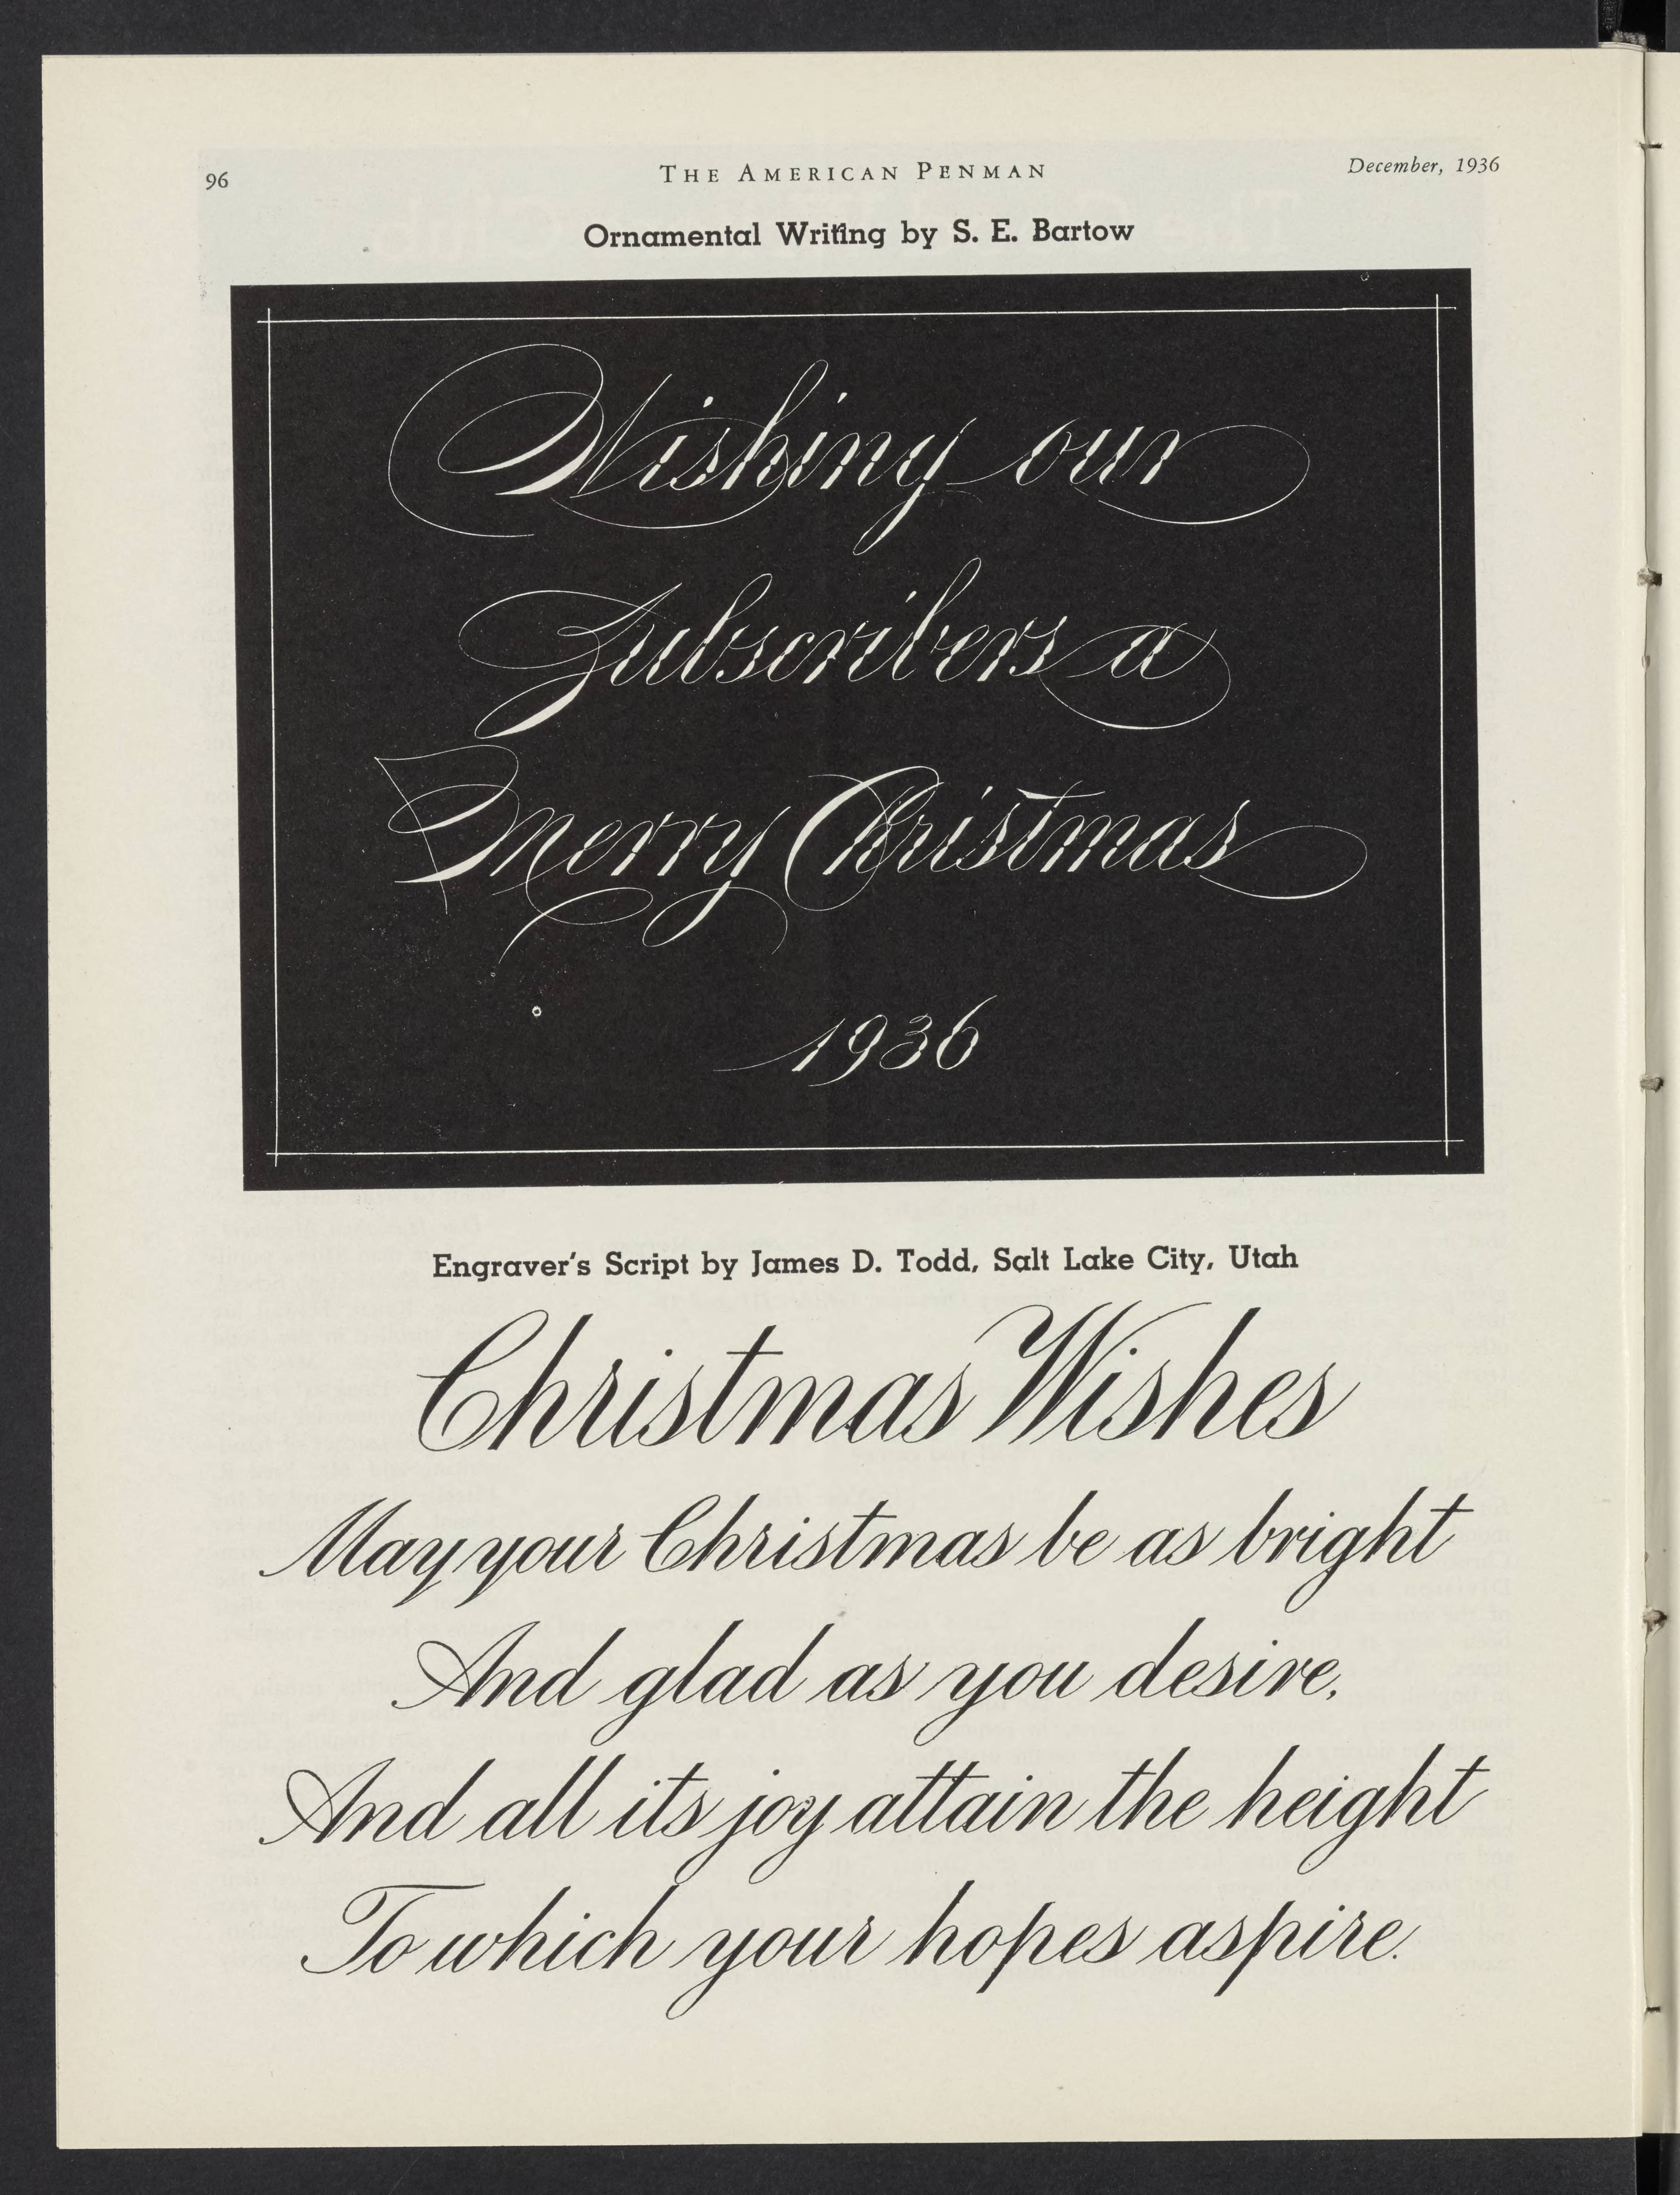 96
THE AMERICAN PENMAN
December, 1936
Ornamental Writing by S. E. Bartow
Wishing our
Subscribers a
Merry Christmas
1936
Engraver's Script by James D. Todd, Salt Lake City, Utah
Christmas Wishes
May your Christmas be as bright
And glad as you desire,
And all its joy attain the height
To which your hopes aspire.